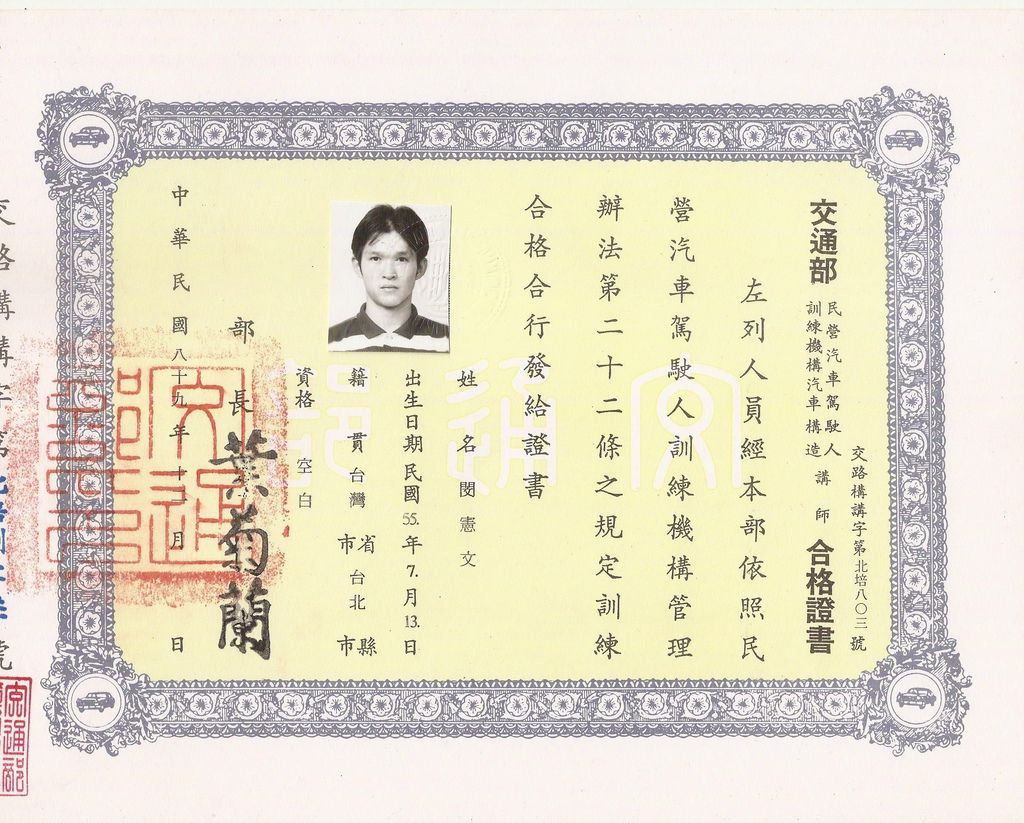 交路構講字第北培八〇三號
交通部 民營汽車駕駛人訓練機構汽車構造 講師 合格證書
左列人員經本部依照民
營汽車駕駛人訓練機構管理
辦法第二十二條之規定訓練
合格合行發給證書
姓名 閔憲文
出生日期民國55.年7.月13.日
籍貫台灣省市台北縣市
資格 空白
部長 葉菊蘭
中華民國八十九年十二月 日
交通部
交通部
交路構講字第
號
交通部